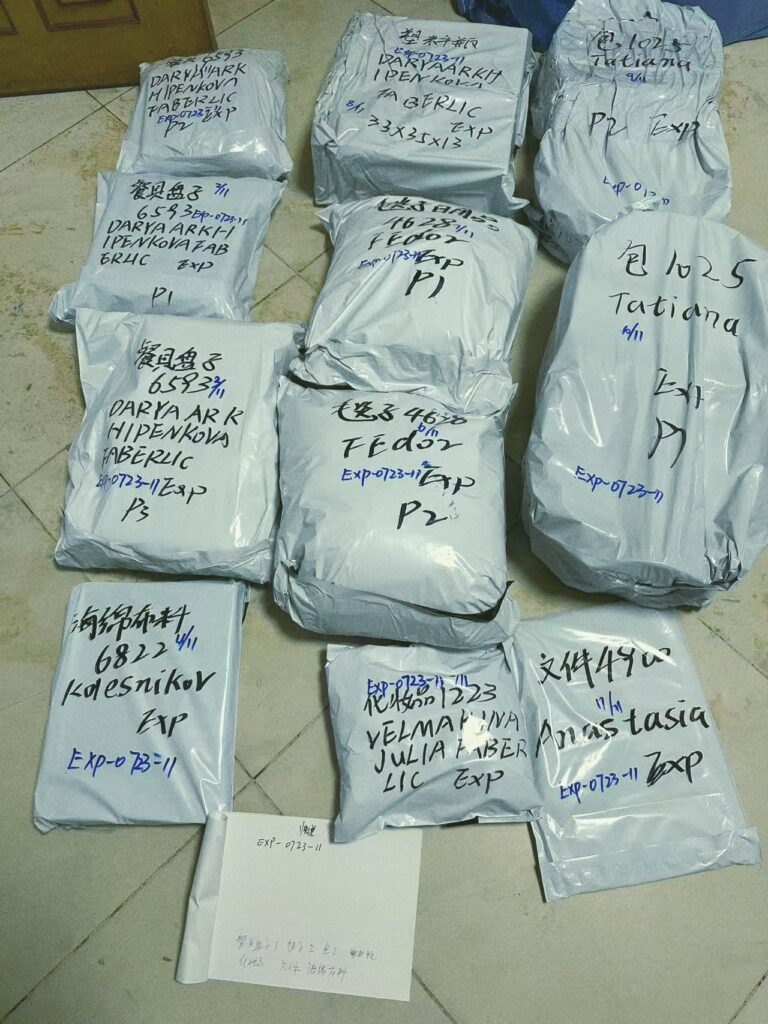 餐具 6593
DARYA ARK
HIPENKOVA
FABERLIC
EXP-0723-11 Exp
P2
塑料瓶
EXP-0723-11
DARYA ARKH
IPENKOVA
FABERLIC
8/11 Exp
33X35X13
包 1025
Tatiana
9/11
P2 Exp
餐具盘子 3/11
6593 EXP-0723-11
DARYA ARKH
IPENKOVA FAB
ERLIC Exp
P1
4628
FEdor
EXP-0723-11 Exp
P1
包 1025
Tatiana
10/11
Exp
P1
EXP-0723-11
餐具盘子
6593
DARYA ARK
HIPENKOVA
FABERLIC
EXP-0723-11 Exp
P3
FEdor
EXP-0723-11 Exp
P2
海绵布料
6822 4/11
Kolesnikov
Exp
EXP-0723-11
EXP-0723-11
化妆品 1223
VELMAKINA
JULIA FABER
LIC Exp
文件
11/11
Anastasia
EXP-0723-11 Exp
快递
EXP-0723-11
餐具盘子3
文件 海绵布料